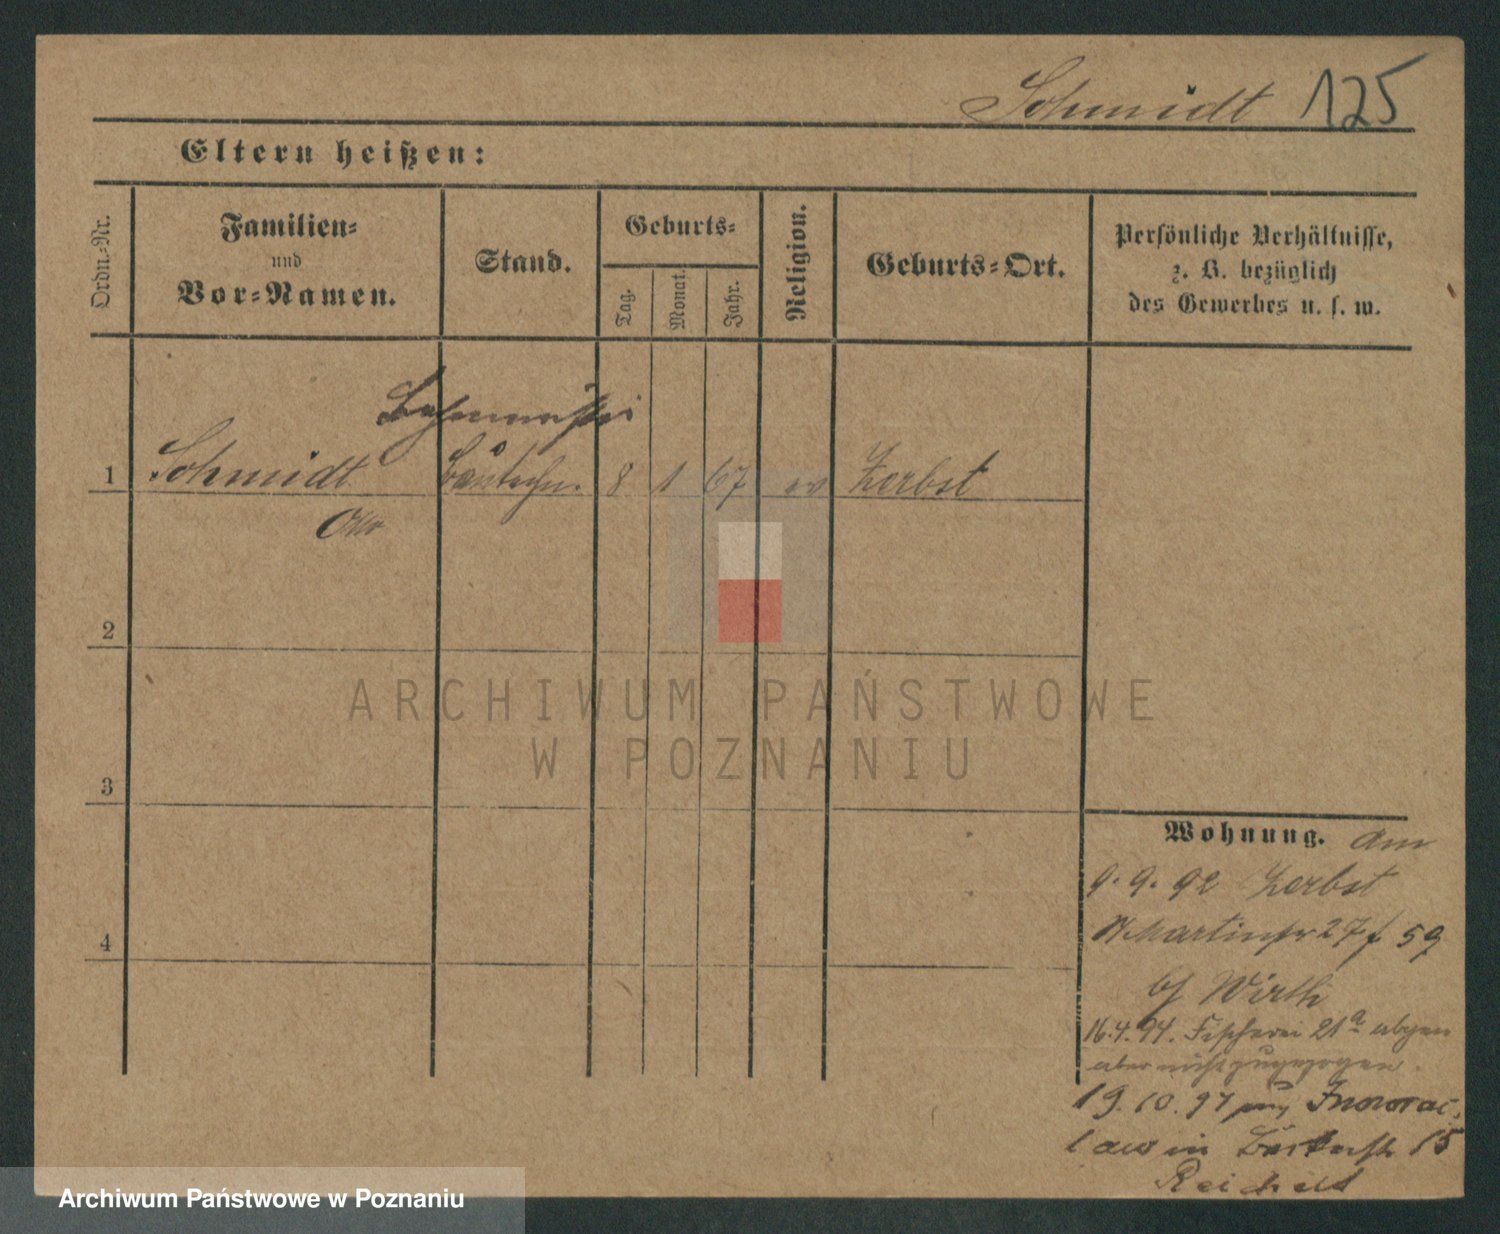 Schmidt 125
Eltern heißen:
Ordn.-Nr.
Familien-
und
Vor-Namen.
Stand.
Geburts-
Tag.
Monat.
Jahr.
Religion.
Geburts-Ort.
Persönliche Verhältnisse,
z. B. bezüglich
des Gewerbes u. s. w.
1 Schmidt Bautechn. 8 1 67 ev Zerbst
Otto
2
3
4
Wohnung. am
9. 9. 92 Zerbst
Martinstr 27 59
bf Wirth
16.4.94. Fischerei 21a abgem
aber nicht zugezogen.
19. 10. 97 Inowraz-
law in 15
ARCHIWUM PAŃSTWOWE
W POZNANIU
Archiwum Państwowe w Poznaniu